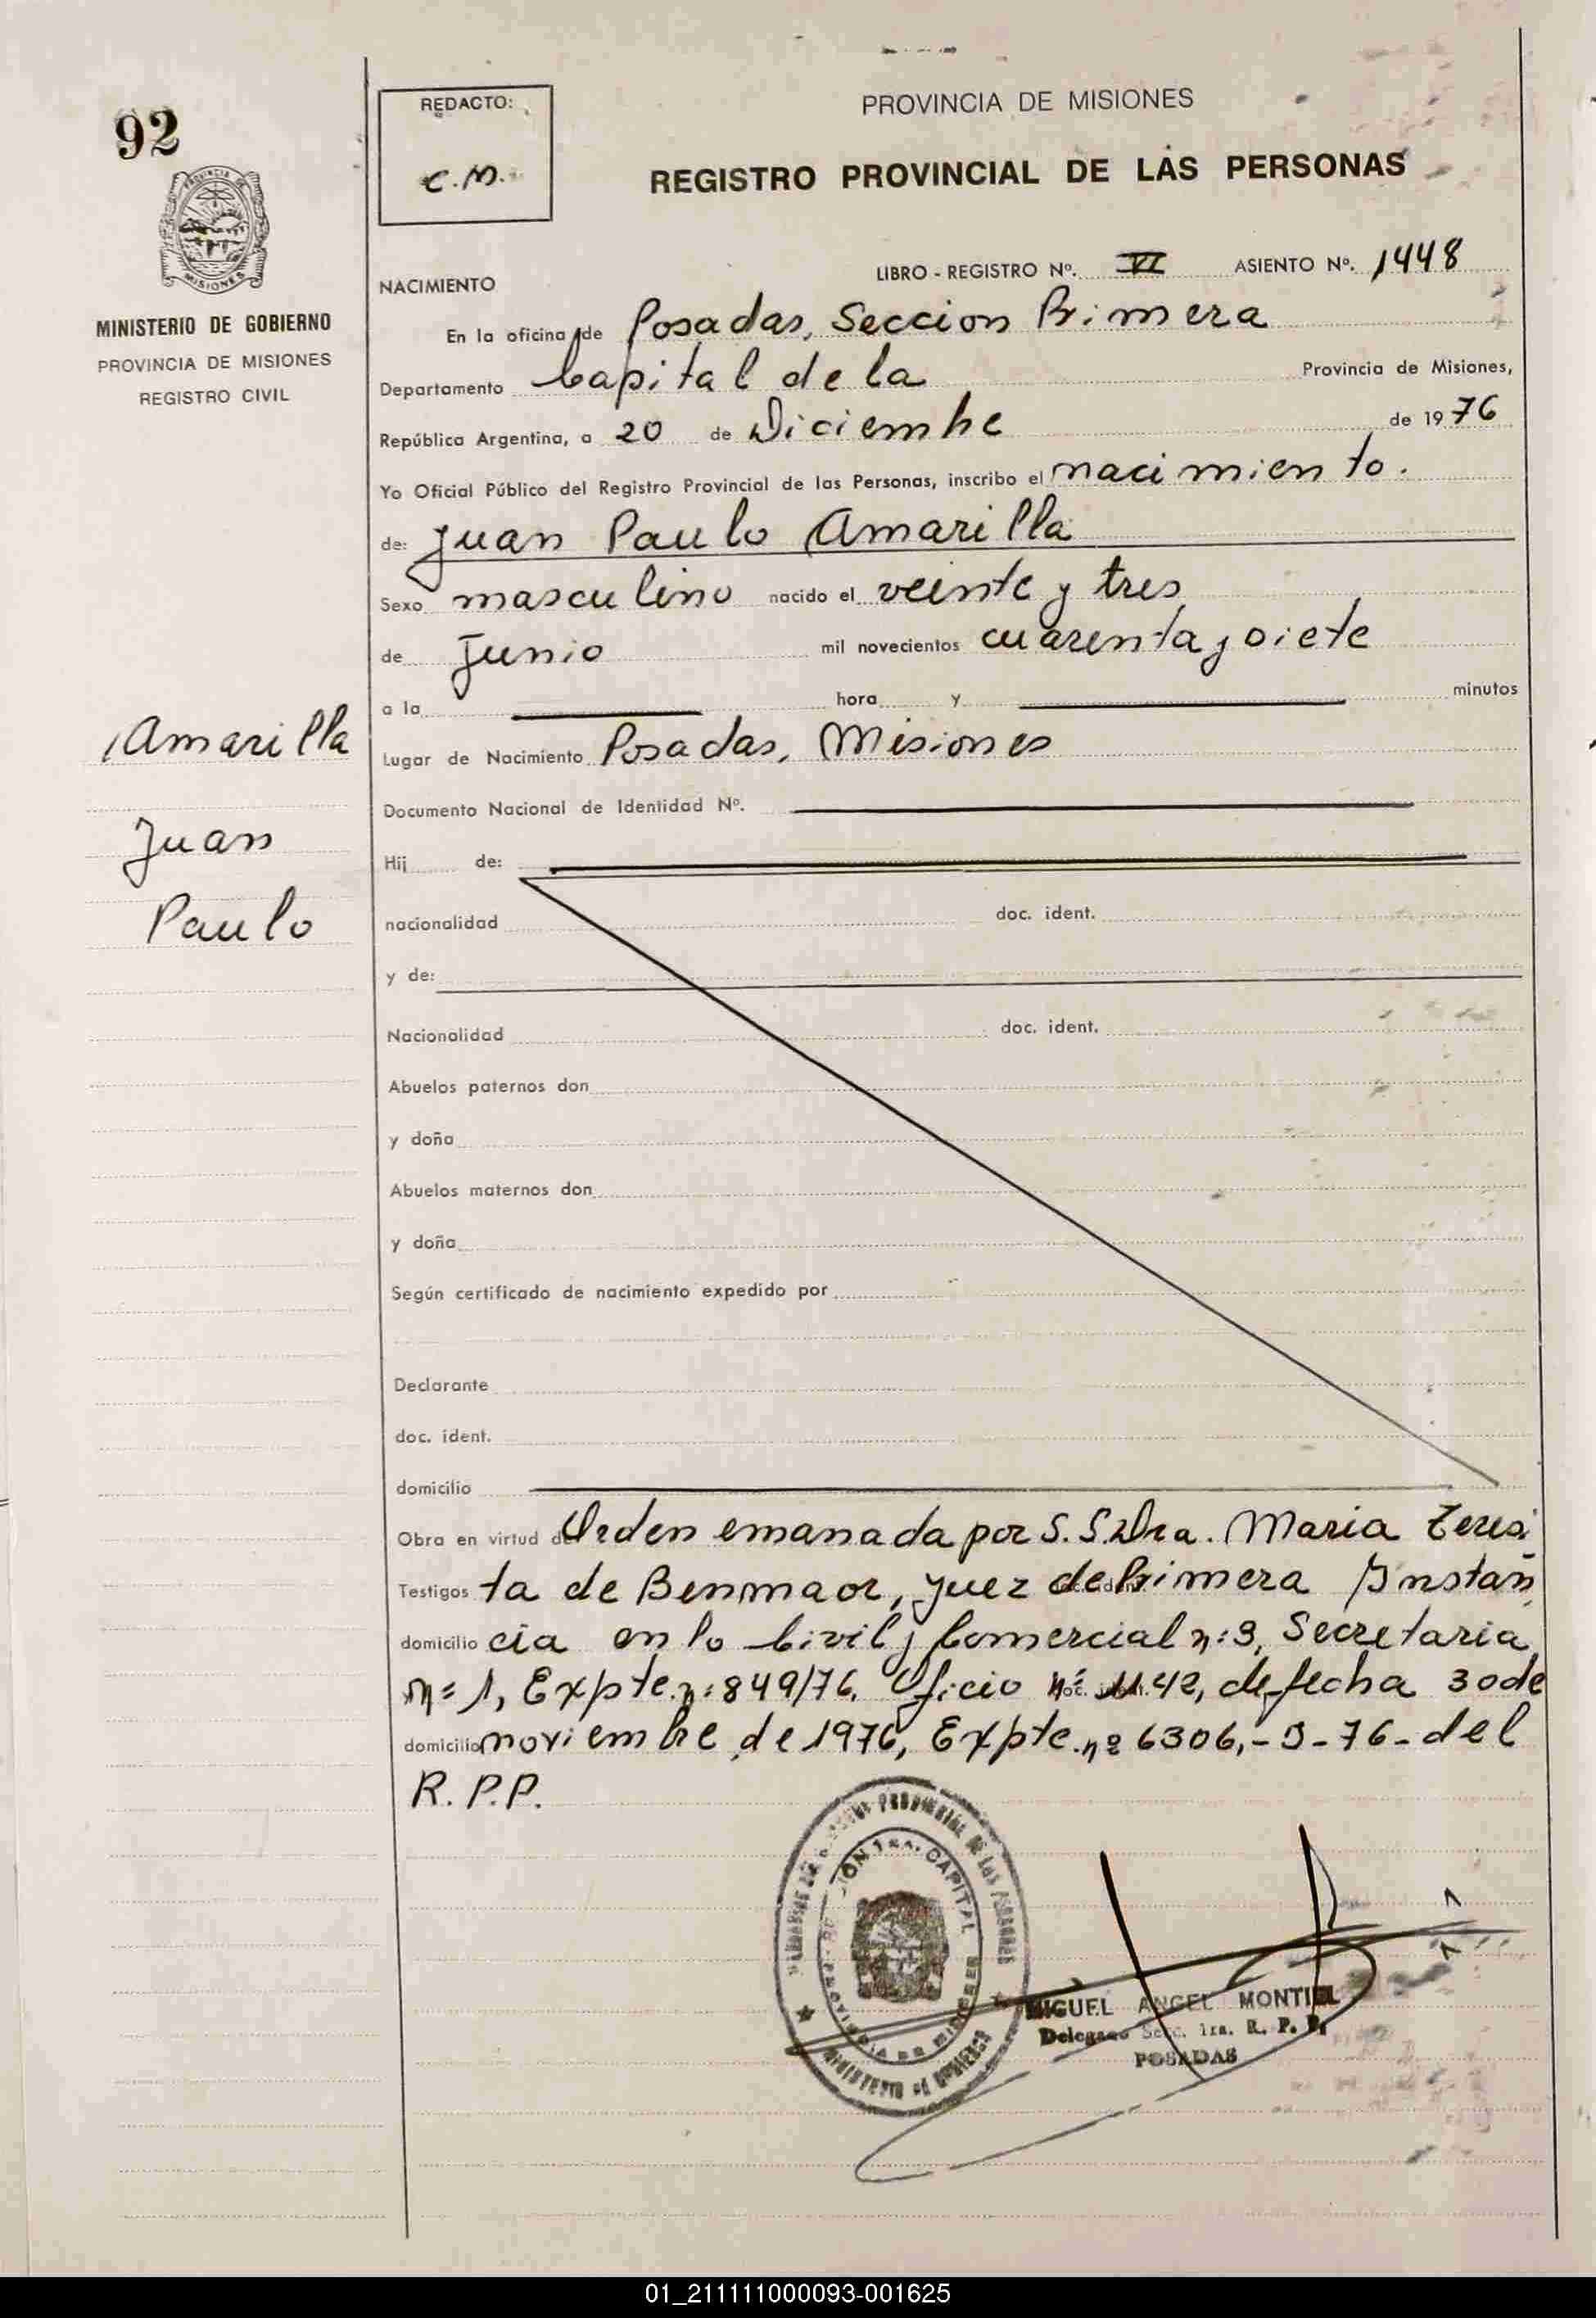 92
REDACTO:
C.M.
PROVINCIA DE MISIONES
REGISTRO PROVINCIAL DE LAS PERSONAS
PROVINCIA DE
MISIONES
MINISTERIO DE GOBIERNO
PROVINCIA DE MISIONES
REGISTRO CIVIL
LIBRO - REGISTRO Nº. VI ASIENTO Nº. 1448
NACIMIENTO
En la oficina de Posadas, Seccion Primera
Departamento Capital de la Provincia de Misiones,
República Argentina, a 20 de Diciembre de 1976
Yo Oficial Público del Registro Provincial de las Personas, inscribo el nacimiento.
de: Juan Paulo Amarilla
Sexo masculino nacido el veinte y tres
de Junio mil novecientos cuarenta y siete
a la hora y minutos
Amarilla
Juan
Paulo
Lugar de Nacimiento Posadas, Misiones
Documento Nacional de Identidad Nº.
Hij de:
nacionalidad doc. ident.
y de:
Nacionalidad doc. ident.
Abuelos paternos don
y doña
Abuelos maternos don
y doña
Según certificado de nacimiento expedido por
Declarante
doc. ident.
domicilio
Obra en virtud de Orden emanada por S. S. Dra. Maria Teresi
Testigos ta de Benmaor, Juez de Primera Instan
domicilio cia en lo Civil y Comercial n: 3, Secretaria
n= 1, Expte. n: 849/76. Oficio nº 1142, de fecha 30 de
domicilio noviembre de 1976, Expte. nº 6306,- J-76- del
R. P.P.
PROVINCIAL DE LAS PERSONAS
1ra. CAPITAL
PROVINCIA DE MISIONES
MINISTERIO DE GOBIERNO
MIGUEL ANGEL MONTIEL
Delegado Secc. 1ra. R. P. P.
POSADAS
01_211111000093-001625